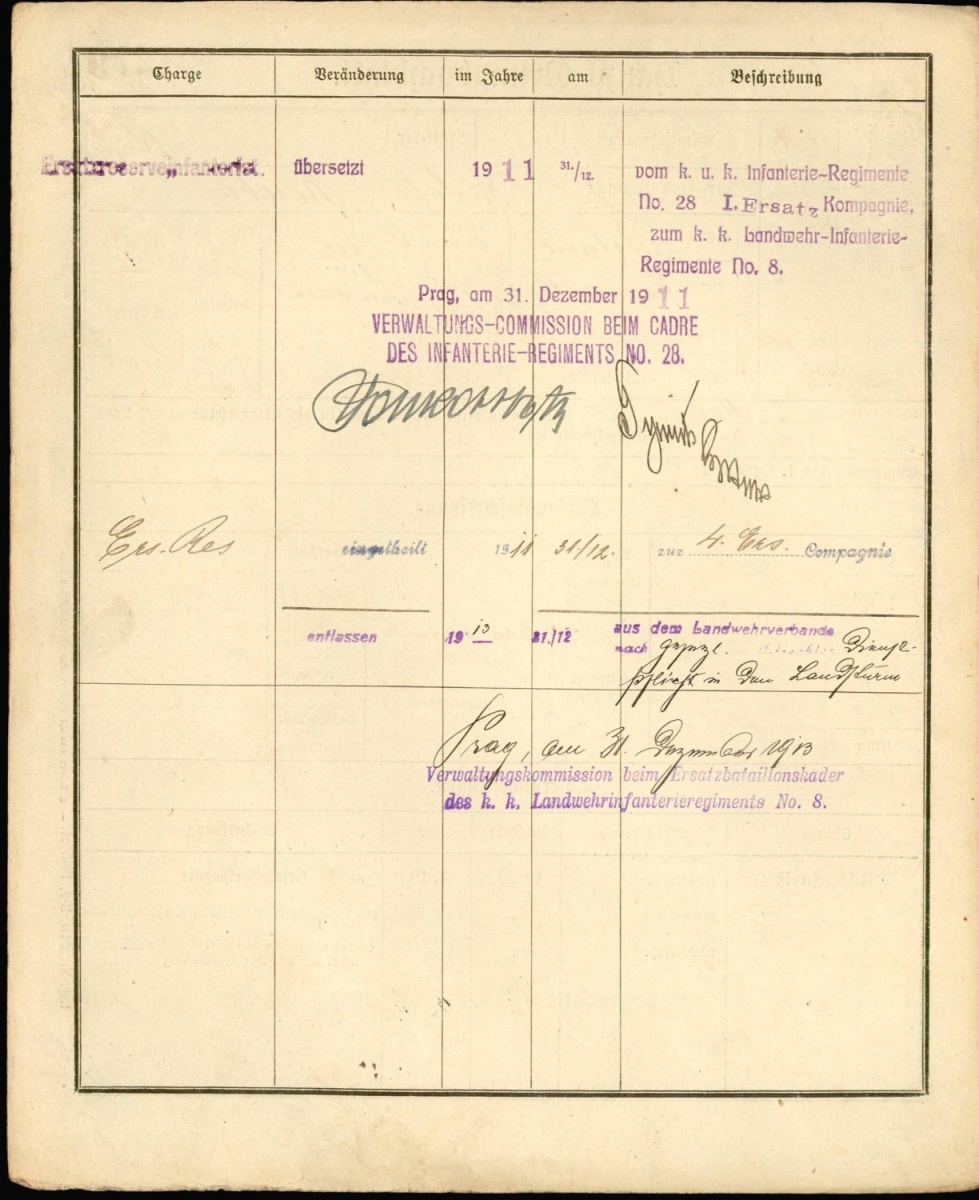 Charge Veränderung im Jahre am Beschreibung
Ersatzreserveinfanterist übersetzt 1911 31./12. vom k. u. k. Infanterie-Regimente
No. 28 I. Ersatz Kompagnie,
zum k. k. Landwehr-Infanterie-
Regimente No. 8.
Prag, am 31. Dezember 1911
VERWALTUNGS-COMMISSION BEIM CADRE
DES INFANTERIE-REGIMENTS NO. 28.
Ers. Res eingetheilt 1911 31/12. zur 4. Ers. Compagnie
entlassen 1913 31./12 aus dem Landwehrverbande
nach gesezl. Dienst-
pflicht in den Landsturm
Prag, am 31. Dezember 1913
Verwaltungskommission beim Ersatzbataillonskader
des k. k. Landwehrinfanterieregiments No. 8.